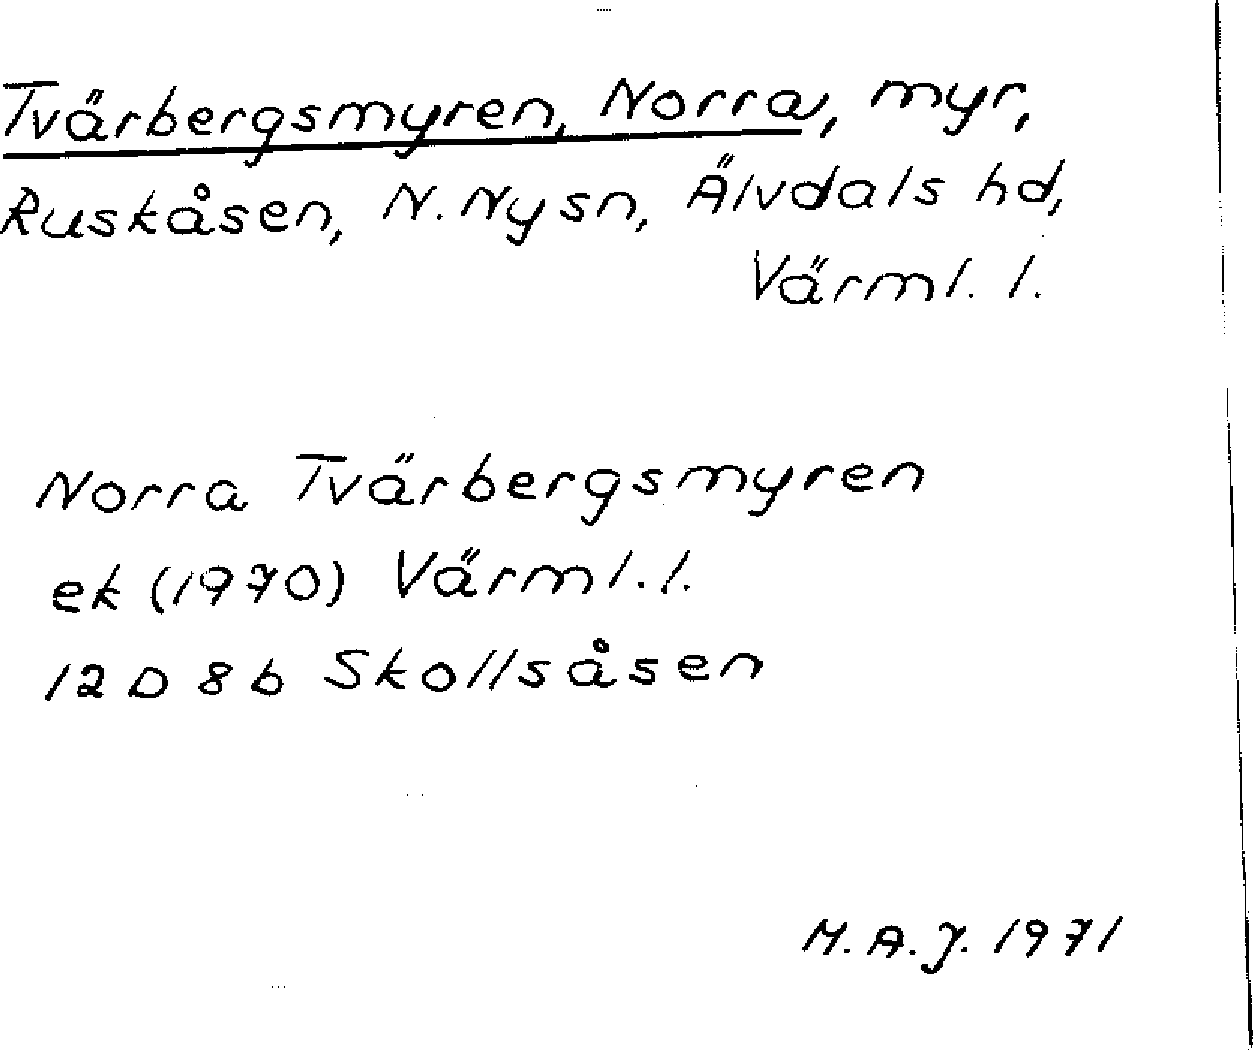 Tvärbergsmyren, Norra, myr,
Ruskåsen, N. Ny sn, Älvdals hd,
Värml. l.
Norra Tvärbergsmyren
ek (1970) Värml. l.
12 D 8 b Skollsåsen
M. A. J. 1971